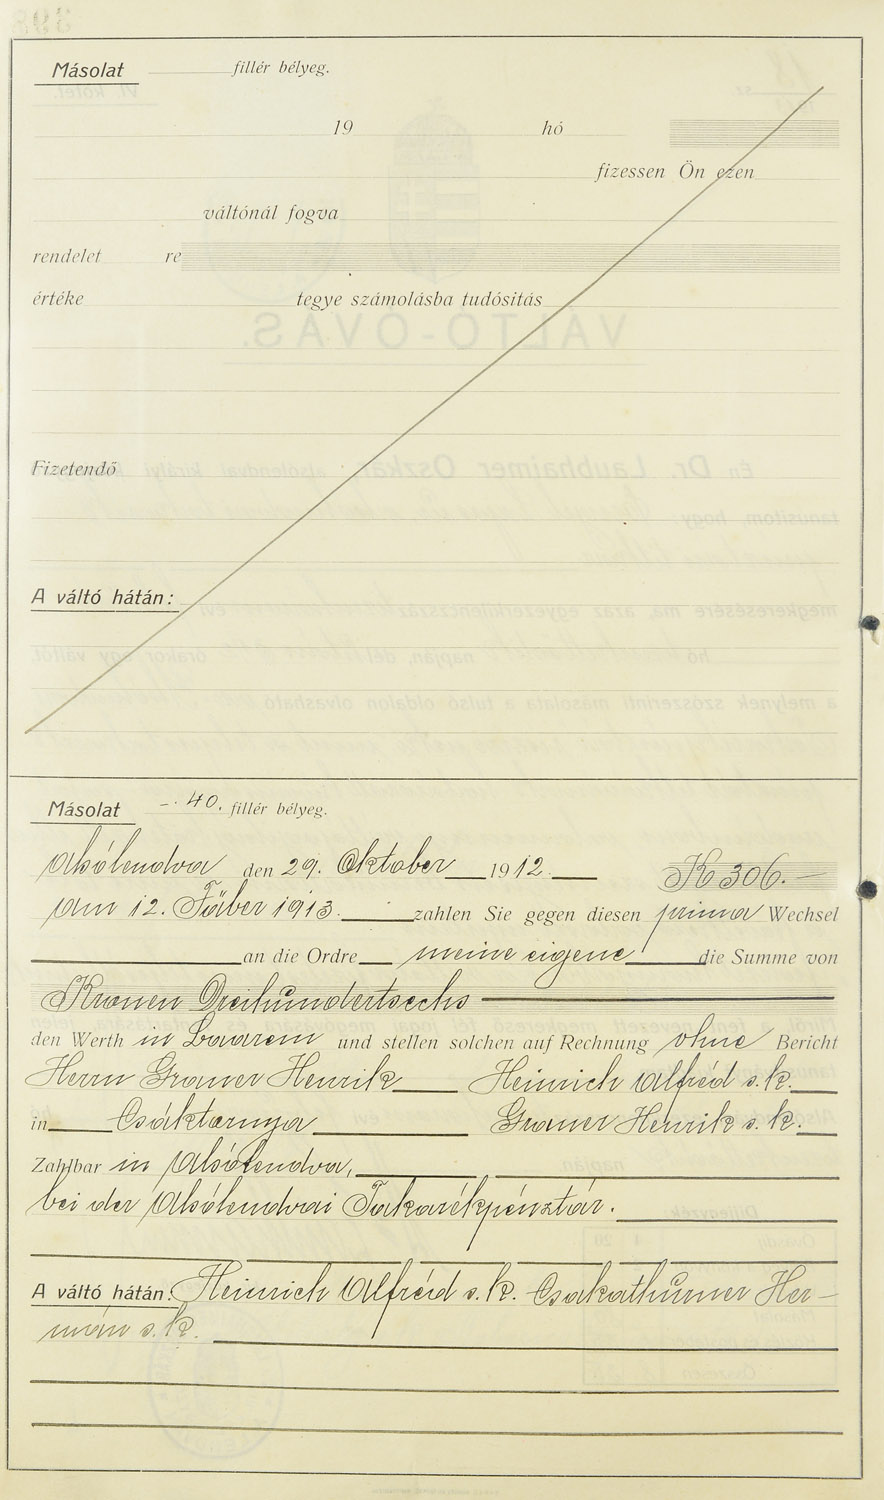 Másolat fillér bélyeg.
19 hó
fizessen Ön ezen
váltónál fogva
rendelet re
értéke tegye számolásba tudósitás
Fizetendő
A váltó hátán:
Másolat -.40. fillér bélyeg.
Alsólendva den 29. Oktober 1912. K 306.–
Am 12. Fäber 1913. zahlen Sie gegen diesen prima Wechsel
an die Ordre meine eigene die Summe von
Kronen Dreihundertsechs
den Werth in Baarem und stellen solchen auf Rechnung ohne Bericht
Herrn Graner Henrik Heinrich Alfréd s. k.
in Csáktornya Graner Henrik s. k.
Zahlbar in Alsólendva,
bei der Alsólendvai Takarékpénztár.
A váltó hátán: Heinrich Alfréd s. k. Csakathurner Her-
mán s. k.